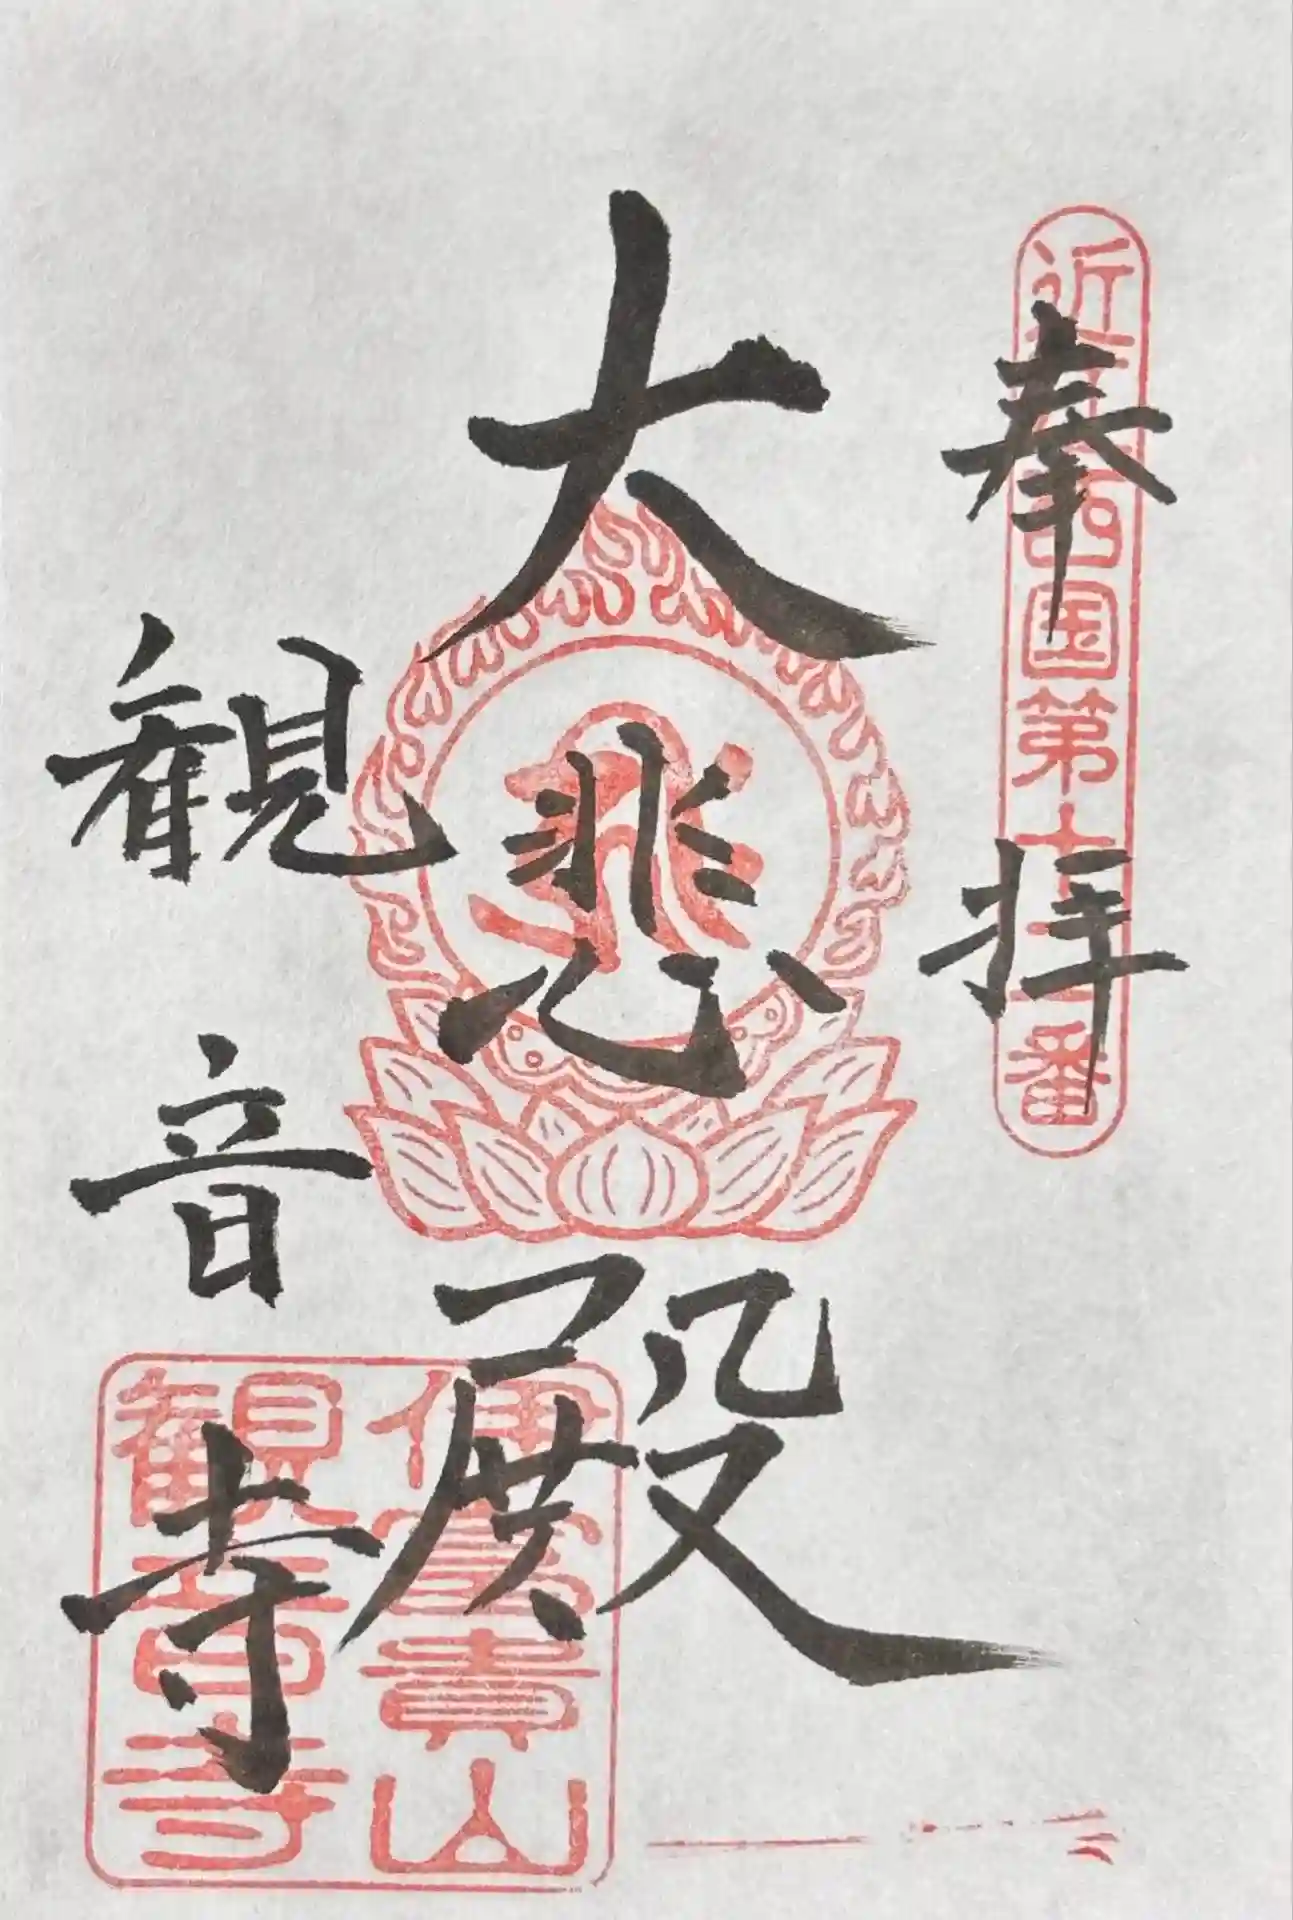 奉拝
近江西国第十二番
大悲殿
観音寺
伊富貴山
観音寺